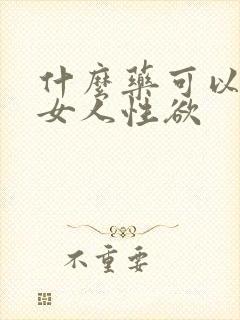 什麼藥可以
女人性欲
不重要